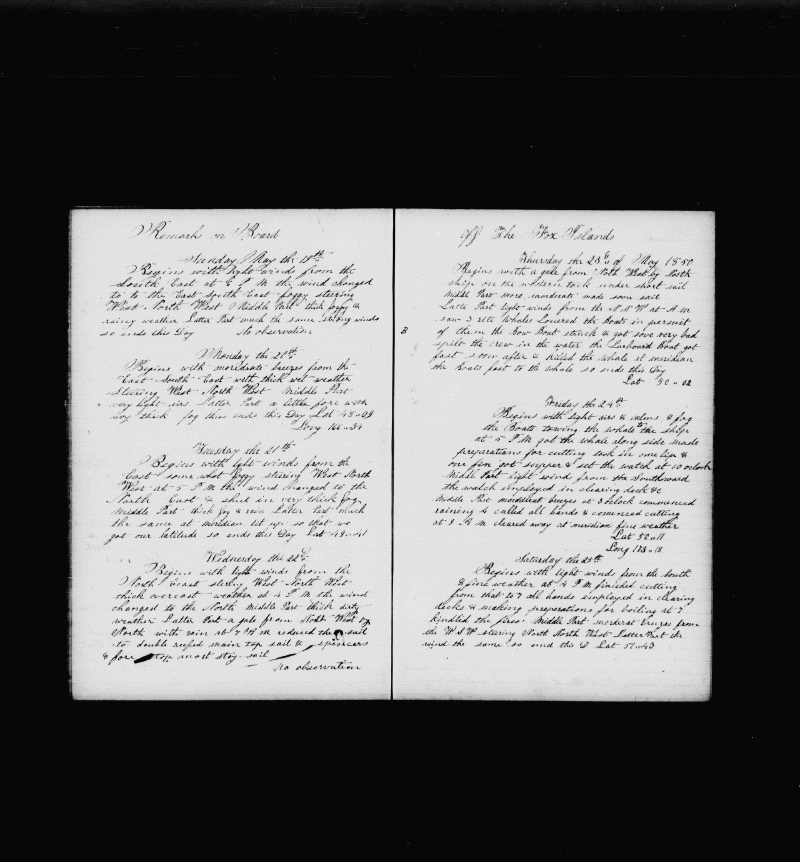 Remark on Board
Sunday May the 19th
Begins with light winds from the
South East at 6 P M the wind changed
to to the East South East foggy steering
West North West Middle Part thick foggy &
rainy weather Latter Part much the same strong winds
so ends this Day No observation
Monday the 20th
Begins with moridrate breezes from the
East South East with thick wet weather
Steering West North West Middle Part
very light airs Latter Part a little fore with
thick fog thus ends this Day Lat 48 " 09
Long 166 " 34
Tuesday the 21th
Begins with light winds from the
East some what foggy steering West North
West at 5 P M the wind changed to the
North East & shut in very thick fog
Middle Part thick fog & rain Latter Part much
the same at meridian lit up so that we
got our latitude so ends this Day Lat 49 " 41
Wednesday the 22d
Begins with light winds from the
North East stering West North West
thick overcast weather at 4 P M the wind
changed to the North Middle Part thick dirty
weather Latter Part a gale from North West by
North with rain at 7 A M reduced the sail
to double reefed main top sail & spencers
& fore top mast stay sail
No observation
Off The Fox Islands
Thursday the 23d of May 1850
Begins with a gale from North West by North
ship on the western tack under short sail
Middle Part more mordrate made some sail
Latter Part light winds from the N N W at A M
saw 3 rite Whales Lowered the Boats in persuit
B of them the Bow Boat struck & got stove very bad
spilt the crew in the water the Larbourd Boat got
fast soon after & killed the whale at meridian
the boats fast to the whale so ends this Day
Lat 50 " 02
Friday the 24th
Begins with light airs & calms & fog
the Boats towing the whale to the ship
at 5 P M got the whale along side made
preperations for cutting took in one lip &
one fin got supper & set the watch at 10 oclock
Middle Part light winds from the Southward
the watch imployed in clearing deck &c
Middle Part moridrate breezes at 3 oclock commenced
raining 4 called all hands & comenced cutting
at 9 A M cleared away at meridian fine weather
Lat 50 " 11
Long 173 " 18
Saturday the 25th
Begins with light winds from the South
& fine weather at 4 P M finished cutting
from that to 7 all hands imployed in clearing
decks & making preperations for boiling at 7
kindled the fires Middle Part mordrat breezes from
the W S W steering North North West Latter Part the
wind the same so ends this D Lat 51 " 43